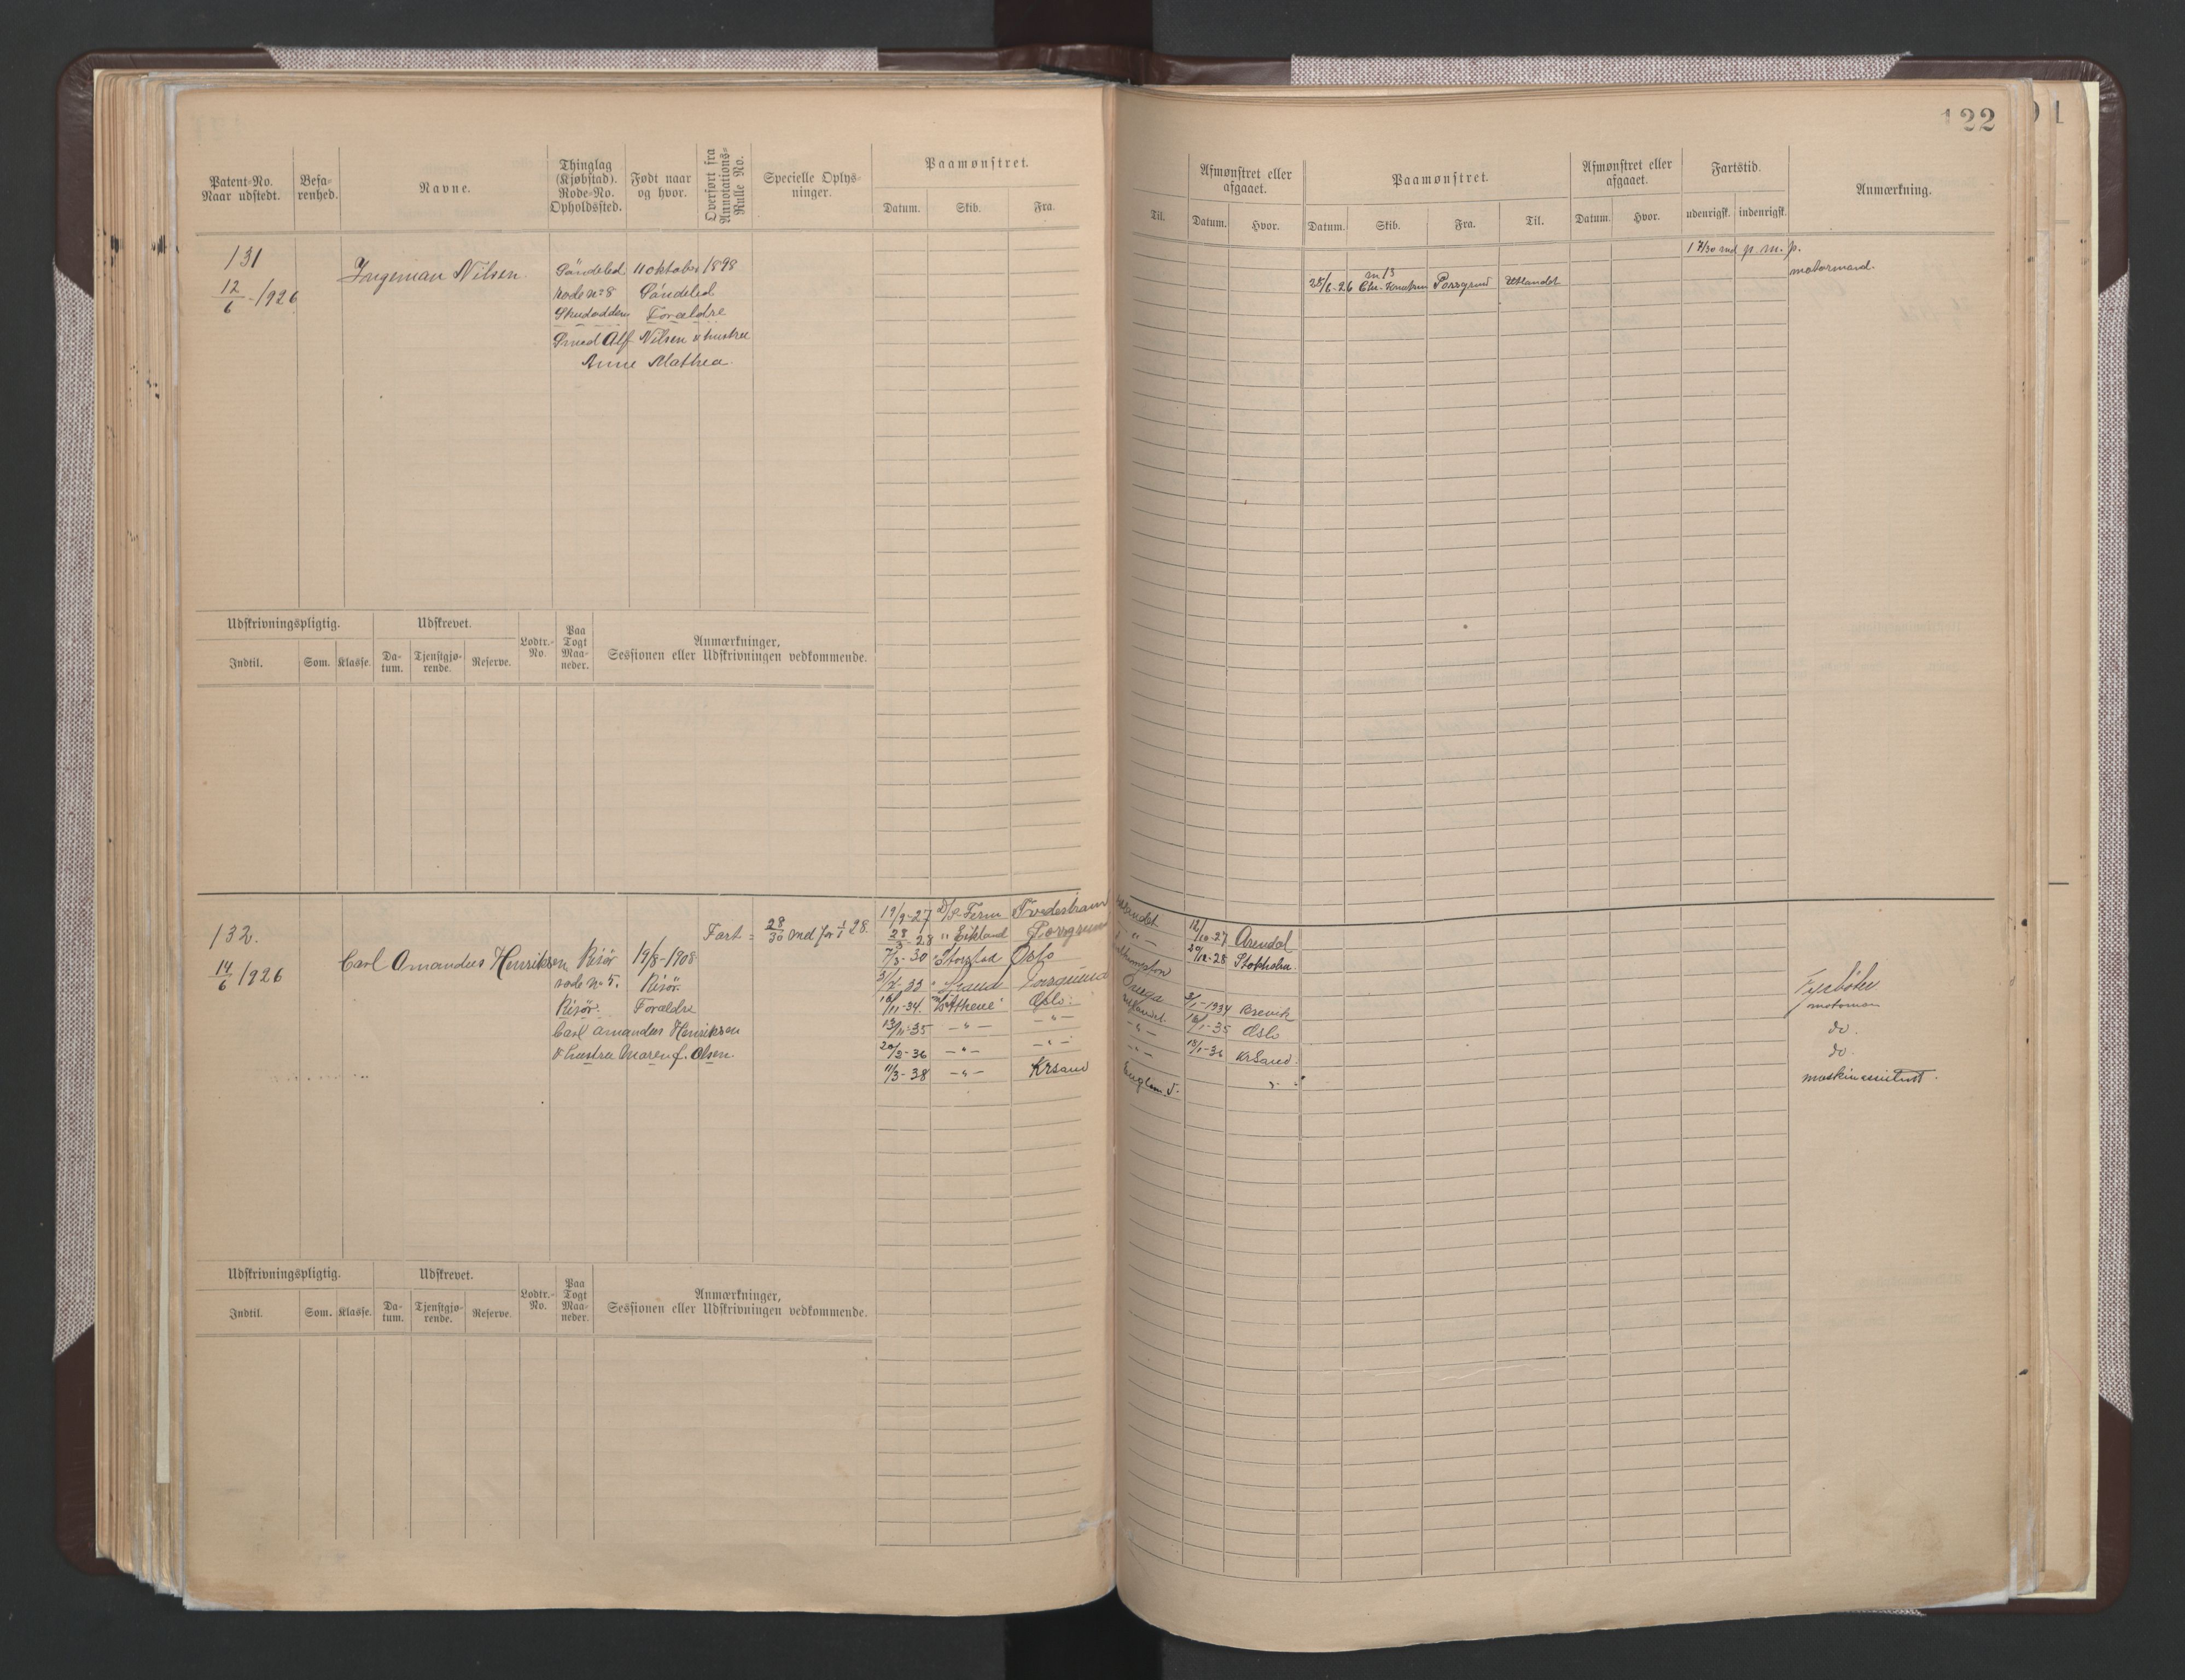 122
Patent-No. Naar udstedt.
Befarenhed.
Navne.
Thinglag (Kjøbstad). Rode-No. Opholdssted.
Født naar og hvor.
Overført fra Annotations-Rulle No.
Specielle Oplysninger.
Paamønstret.
Datum. Skib. Fra.
Til.
Afmønstret eller afgaaet.
Datum. Hvor.
Paamønstret.
Datum. Skib. Fra. Til.
Afmønstret eller afgaaet.
Datum. Hvor.
Fartstid.
udenrigsk. indenrigsk.
Anmærkning.
131
12/6-1926
Ingeman Nilsen
Söndeled 11 oktober 1898
rode nº 8 Söndeled
Forældre
Smed Alf Nilsen & hustru
Anne Mathea.
25/6-26 Porsgrund Utlandet
p. m. p.
motormand.
Udskrivningspligtig. Udskrevet. Lodtr.-No. Paa Togt Maaneder. Anmærkninger, Sessionen eller Udskrivningen vedkommende.
Indtil. Som. Klasse. Datum. Tjenstgjørende. Reserve.
132.
14/6 1926
Carl Amandus Henriksen Risör 19/8-1908
rode nº 5. Risör
Risör. Forældre
Carl Amandus Henriksen
& hustru Maren f. Olsen.
Fart = 28/30 md for 1/1 28.
19/9-27 D/S Ferm Tvedestrand
28/3-28 " Eikland Porsgrund
7/3-30 " Storstad Oslo
16/11-34. Oslo.
13/11-35 -"- -"-
20/3-36 -"- -"-
11/3-38 -"- Krsand
16/10-27 Arendal
-"- 20/12-28 Stokholm.
Onega 3/1-1934 Brevik
16/1-35 Oslo
-"- 13/1-36 KrSand.
-"-
Fyrbøter
motorman
do.
do.
maskinassistent.
Udskrivningspligtig. Udskrevet. Lodtr.-No. Paa Togt Maaneder. Anmærkninger, Sessionen eller Udskrivningen vedkommende.
Indtil. Som. Klasse. Datum. Tjenstgjørende. Reserve.